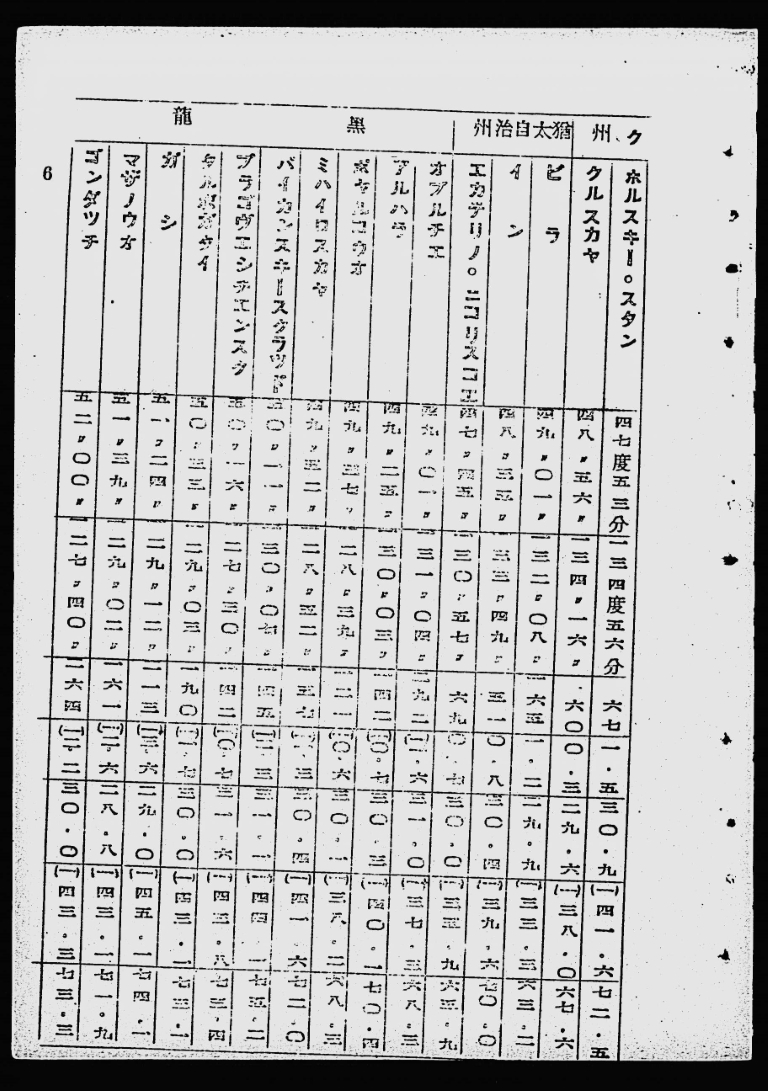 ク、州
猶太自治州
黒
龍
ホルスキー。スタン 四七度五三分 一三四度五六分 六七 一・五 三〇・九 (一)四一・六 七二・五
クルスカヤ 四八〃五六〃 一三四〃一六〃 六〇 〇・三 二九・六 (一)三八・〇 六七・六
ビラ 四九〃〇一〃 一三二〃〇八〃 一六五 一・二 二九・九 (一)三三・三 六三・二
イン 四八〃三五〃 一三三〃四九〃 五一 〇・八 三〇・四 (一)三九・六 七〇・〇
エカテリノ。ニコリスコエ 四七〃四五〃 一三〇〃五七〃 六九 〇・七 三〇・〇 (一)三五・九 六五・九
オブルチエ 四九〃〇一〃 一三一〃〇四〃 三九二 (一)一・六 三一・〇 (一)三七・三 六八・三
アルハラ 四九〃二五〃 一三〇〃〇三〃 一四二 (一)〇・七 三〇・三 (一)四〇・一 七〇・四
ボヤルコウオ 四九〃三七〃 一二八〃三九〃 一二一 (一)〇・六 三〇・一 (一)三八・二 六八・三
ミハイロスカヤ 四九〃五二〃 一二八〃五二〃 一五七 (一)一・三 三〇・四 (一)四一・六 七二・〇
バイカンスキースクラツド 五〇〃一一〃 一三〇〃〇七〃 一四五 (一)一・三 三一・一 (一)四四・一 七五・二
ブラゴヴエシチエンスク 五〇〃一六〃 一二七〃三〇〃 一四二 (一)〇・七 三一・六 七三・四
タルボガタイ 五〇〃三三〃 一二九〃〇三〃 一九〇 (一)一・七 三〇・〇 (一)四三・一 七三・一
ガシ 五一〃二四〃 一二九〃一二〃 二一三 (一)三・六 二九・〇 (一)四五・一 七四・一
マザノウオ 五一〃三九〃 一二九〃〇二〃 一六一 (一)二・六 二八・八 (一)四三・一 七一・九
ゴンダツチ 五二〃〇〇〃 一二七〃四〇〃 二六四 (一)二・二 三〇・〇 (一)四三・三 七三・三
6